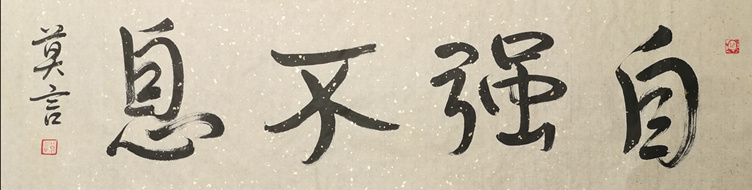 自强不息
莫言